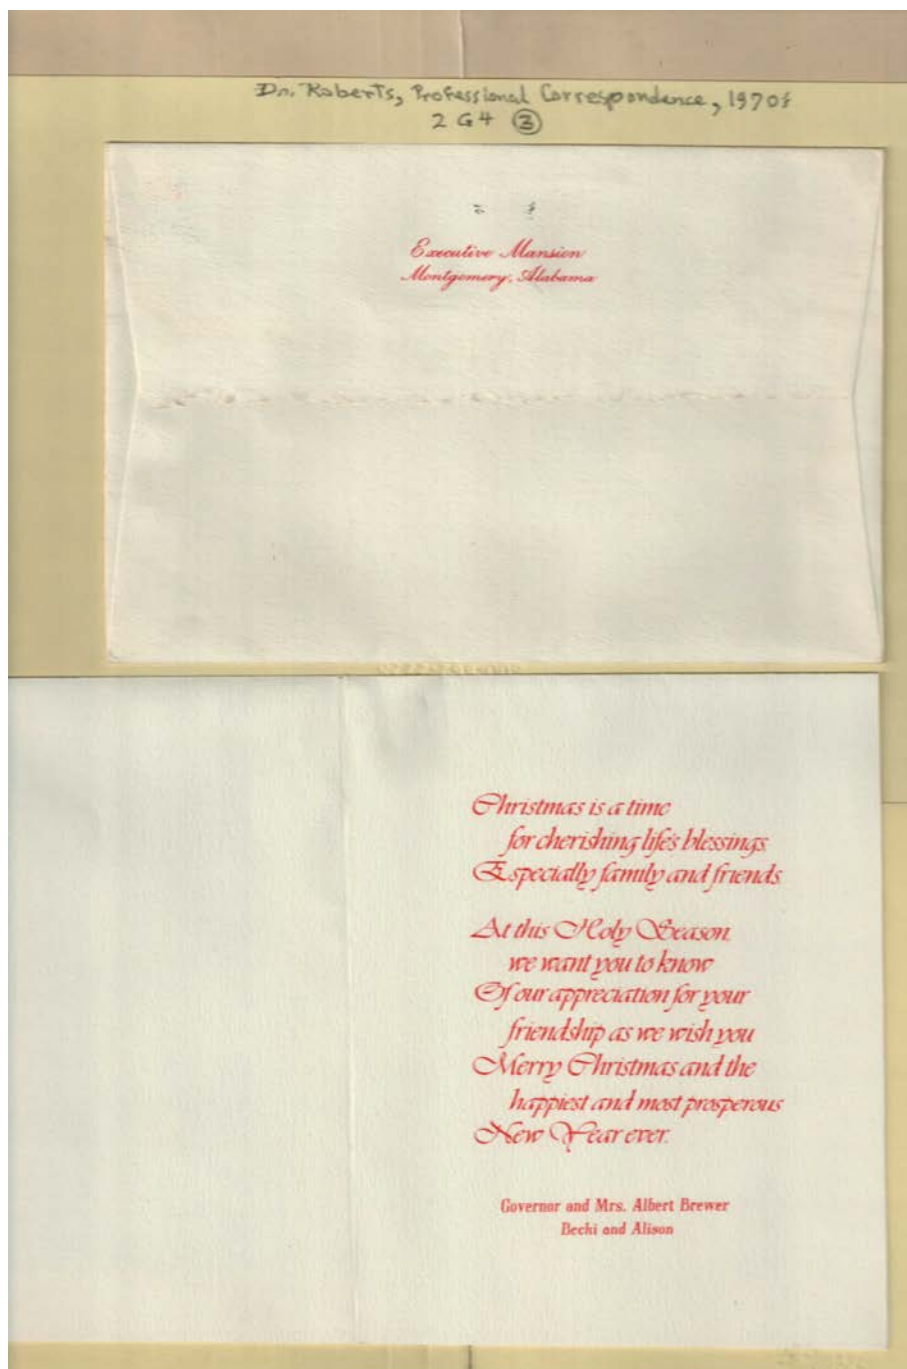 Dr. Roberts, Professional Correspondence, 1970s
2 G4 ③
Executive Mansion
Montgomery, Alabama
Christmas is a time
for cherishing life's blessings,
Especially family and friends.
At this Holy Season,
we want you to know
Of our appreciation for your
friendship as we wish you
Merry Christmas and the
happiest and most prosperous
New Year ever.
Governor and Mrs. Albert Brewer
Becki and Alison